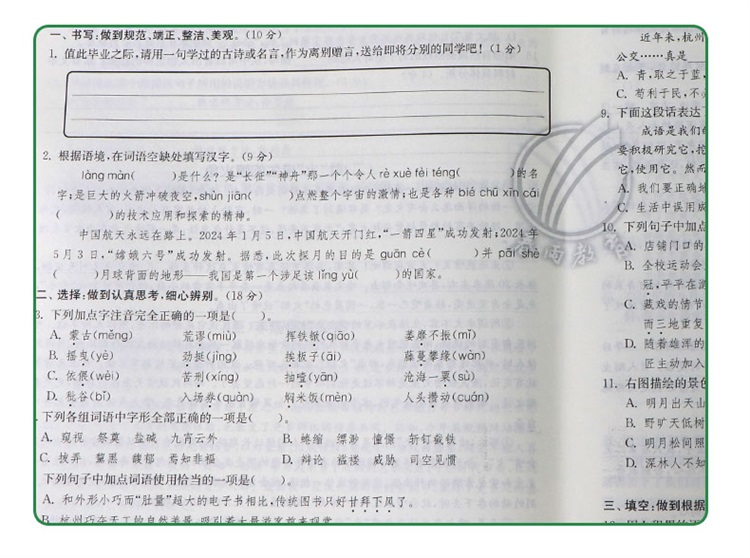 一、书写:做到规范、端正、整洁、美观。(10分)
1. 值此毕业之际,请用一句学过的古诗或名言,作为离别赠言,送给即将分别的同学吧!(1分)
2. 根据语境,在词语空缺处填写汉字。(9分)
làng màn( )是什么？是“长征”“神舟”那一个个令人rè xuè fèi téng( )的名
字;是巨大的火箭冲破夜空,shùn jiān( )点燃整个宇宙的激情;也是各种bié chū xīn cái
( )的技术应用和探索的精神。
中国航天永远在路上。2024年1月5日,中国航天开门红,“一箭四星”成功发射;2024年
5月3日,“嫦娥六号”成功发射。据悉,此次探月的目的是guān cè( )并pāi shè
( )月球背面的地形——我国是第一个涉足该lǐng yù( )的国家。
二、选择:做到认真思考,细心辨别。(18分)
3. 下列加点字注音完全正确的一项是( )。
A. 蒙古(měng) 荒谬(miù) 挥铁锨(qiāo) 萎靡不振(mǐ)
B. 摇曳(yè) 劲挺(jìng) 挨板子(āi) 藤蔓攀缘(wàn)
C. 依偎(wèi) 苦刑(xíng) 抽噎(yān) 沧海一粟(sù)
D. 秕谷(bǐ) 入场券(quàn) 焖米饭(mèn) 人头攒动(cuán)
下列各组词语中字形全部正确的一项是( )。
A. 窥视 祭奠 盐碱 九宵云外 B. 蜷缩 缥缈 憧憬 斩钉截铁
C. 拔弄 黧黑 馥郁 焉知非福 D. 辩论 褴褛 威胁 司空见惯
下列句子中加点词语使用恰当的一项是( )。
A. 和外形小巧而“肚量”超大的电子书相比,传统图书只好甘拜下风了。
近年来,杭州
公交……真是
A. 青,取之于蓝,
C. 苟利于民,不
9. 下面这段话表达
成语是我们
要积极研究它,挖
它,使用它。然而
A. 我们要正确地
C. 生活中误用成
10. 下列句子中加点
A. 店铺门口的
B. 全校运动会
冠,平平在游
C. 藏戏的情节
而三地重复
D. 随着雄浑的
匠主动加入
11. 右图描绘的景色
A. 明月出天山
B. 野旷天低树
C. 明月松间照
D. 深林人不知
三、填空:做到根据